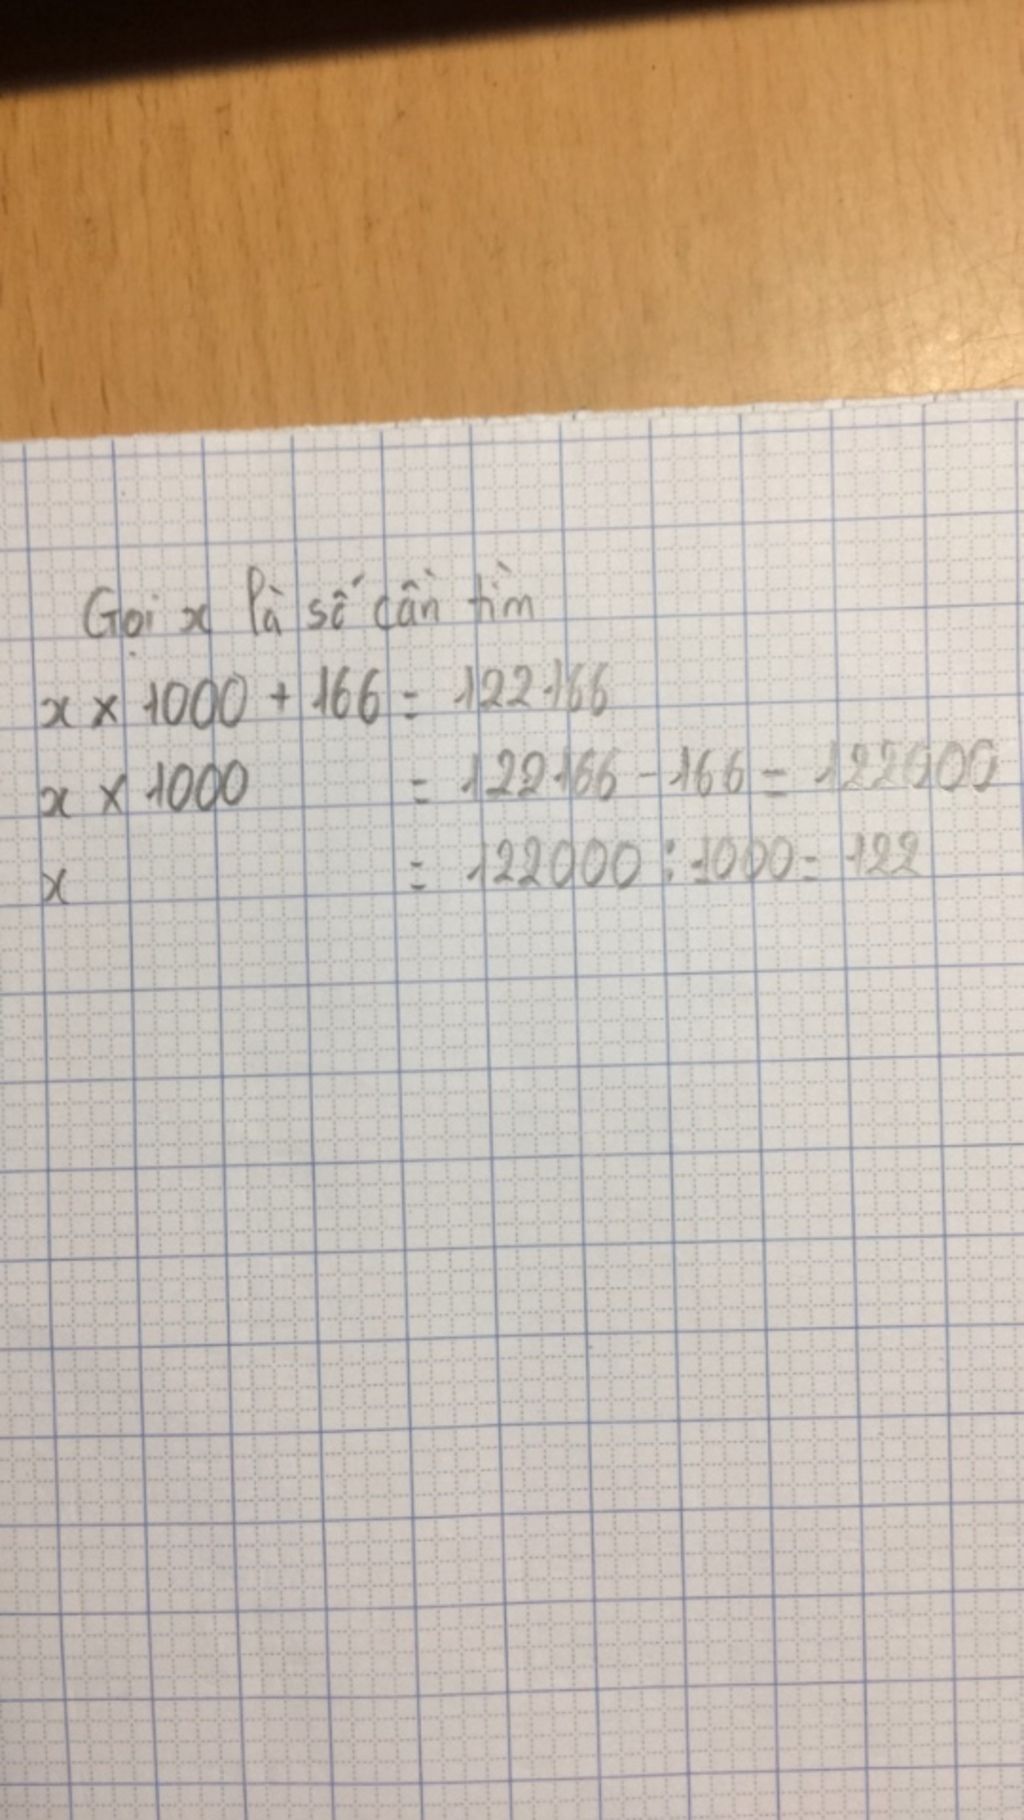 Gọi x là số cần tìm
x × 1000 + 166 = 122166
x × 1000 = 122166 - 166 = 122000
x = 122000 : 1000 = 122